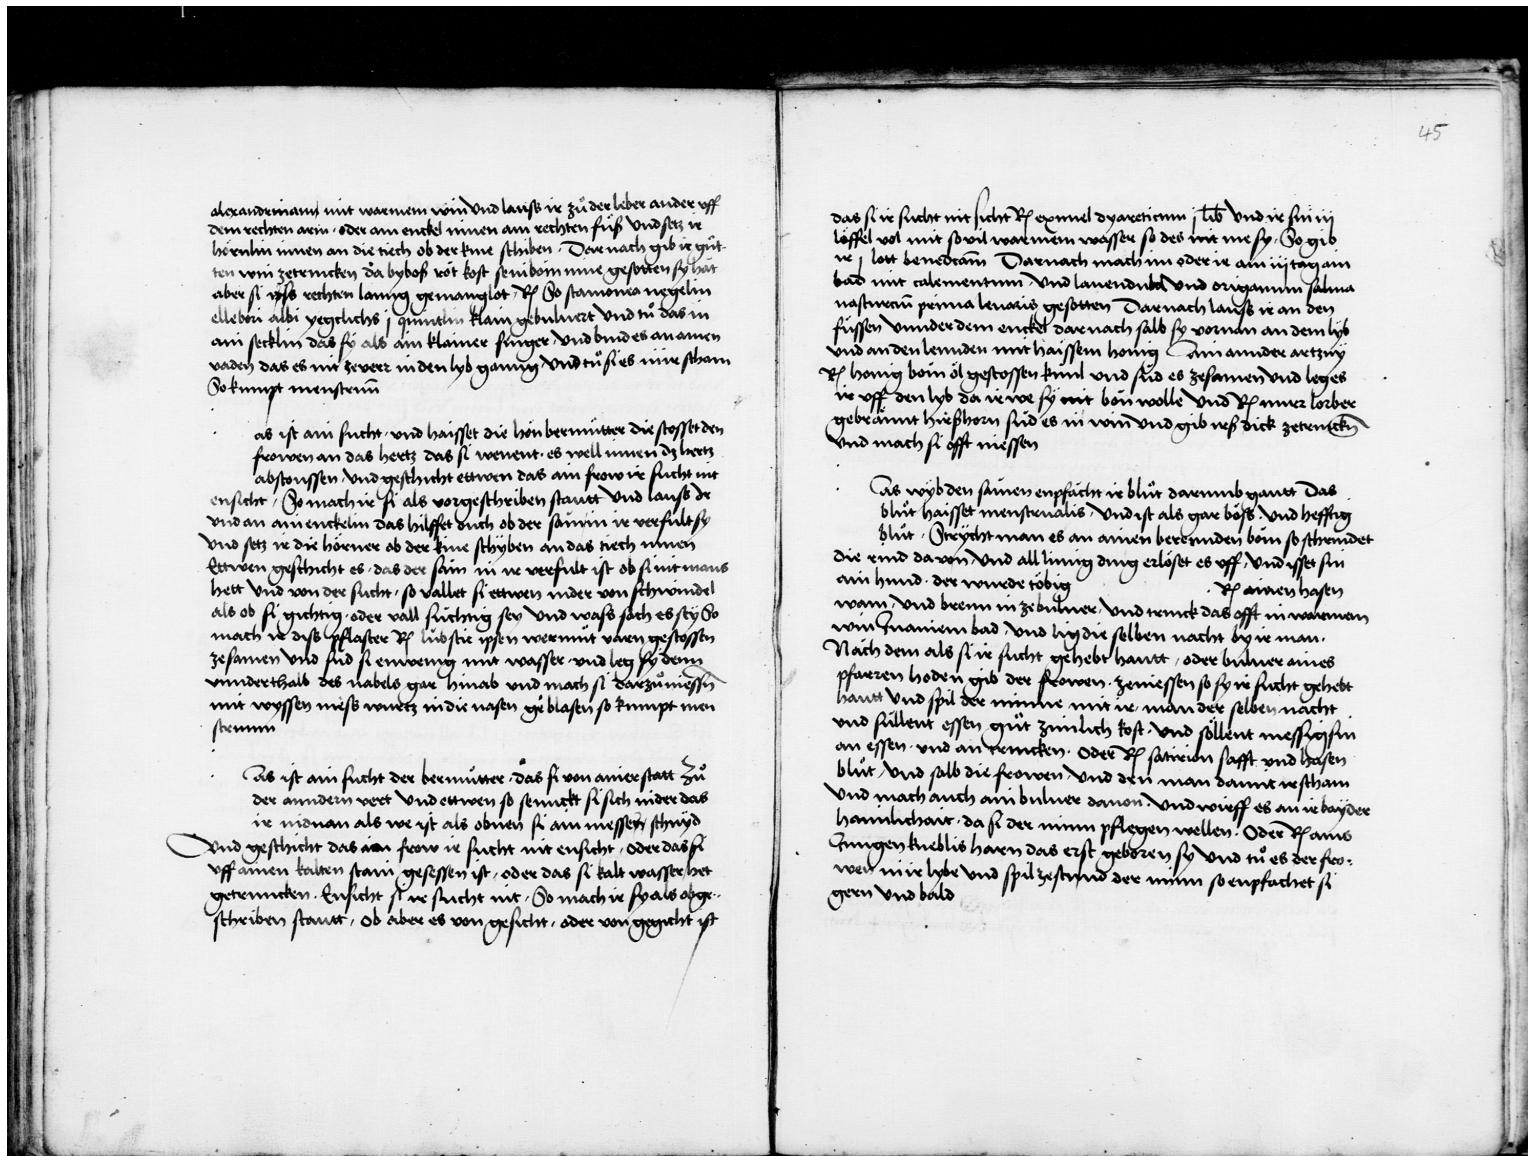 alexandrinam mit warmem win und lauss ir zů der leber ander uff
dem rechten arm · oder am enckel innen am rechten fůß und setz ir
hörnlin innen an die tiech ob der knie schiben · Darnach gib ir gůt
ten win zetrincken da byboß rót kost seniboim inne gesotten sy hat
aber si ir rechten lanng gemanglot · R So stamonea negelin
ellebori albi yegclichs j quintlin klain gebulvert und tů das in
ain secklin das sy als ain klainer finger · und bind es an ainen
vaden das es nit zeverr in den lyb ganng · und tů si es in ir scham
So kumpt menstruu
as ist ain sucht · und haisset die hön bermůtter die stosset den
frowen an das hertz das si wenent · es well innen dz hertz
abstoussen · und geschicht ettwen das ain frow ir sucht nit
ensicht · So mach ir si als vorgeschriben stautt und lauss ir
und an ain enckelin das hilffet ouch ob der saumm ir verfult sy
und setz ir die hörner ob der knie schyben an das tiech innen
Ettwen geschicht es · das der sam in ir verfult ist ob si nit mans
hett und von der sucht · so vallet si ettwen nider von schwindel
als ob si gichtig · oder vall süchtig sey und wass sach es sey So
mach ir diss pflaster R lübstic ipsen wermůt varen gestossen
zesamen und süd si ein wenig mit wasser · und leg sy denn
innderthalb des nabels gar hinab und mach si darzů niessn
mit wyssen niess wurtz in die nasen geblasen so kumpt men
struum
as ist ain sucht der bermůtter · das si von ainer statt zů
der anndern vert und ettwen so senckt si sich nider das
ir nidnan als we ist als obnen si ain messer schnyd
Und geschicht das ain frow ir sucht nit ensicht · oder das si
uff ainen kalten stain gesessen ist · oder das si kalt wasser het
getruncken · Ensicht si ir sucht nit · So mach ir sy als obge
schriben stautt · ob aber es von gesicht · oder von gegicht ist
45
das si ir sucht nit sicht R eximel dyareticum j lib und ir sin iij
löffel vol mit sovil warmem wasser so des nit me sy · So gib
ir j lott benedcam Darnach mach im oder ir ain iij tag ain
bad mit calementum · und lauendula und origanum salvia
nasturciu prima leuoris gesotten Darnach lauss ir an den
füssen unnder dem enckel darnach salb sy vornan an dem lyb
und an den lennden mit haissem honig Ain annder artzny
R honig boin öl gestossen kiml und süd es zesamen und leg es
ir uff den lyb da ir we sy mit bou wolle und R inner lorber
gebrännt hirßhorn süd es in win und gib irß dick zetrincken
und mach si offt niessen
as wyb den saumen enpfächt ir blůt darumb gautt Das
blůt haisset menstrualis · und ist als gar böß · und hefftig
blůt · Strycht man es an ainen berennden boim so schrindet
die rind davon · und all liinig ding erlöset es uff · und isset sin
ain hund · der wurde töbig · R ainen hasen
wam · und brenn in zebulver · und trinck das offt in warmem
win Inn ainem bad · und lig die selben nacht by ir man ·
Nach dem als si ir sucht gehebt hautt · oder bulver aines
pfarren hoden gib der frowen · zeniessen so sy ir sucht gehebt
hautt und spil der minne mit ir · man der selben nacht
und süllent essen gůt zimlich kost · und söllent messig sin
an essen · und an trincken · Oder R satirion safft und hasen
blůt · und salb die frowen · und den man damit ir scham
und mach auch ain bulver davon · und wirff es an ir bayder
haimlichait · da si der minn pflegen wellen · Oder R ains
Jungen kneblis harn das erst geboren sy und tů es der fro:
wen in ir lybe und spil zestund der minn so enpfachet si
gern und bald